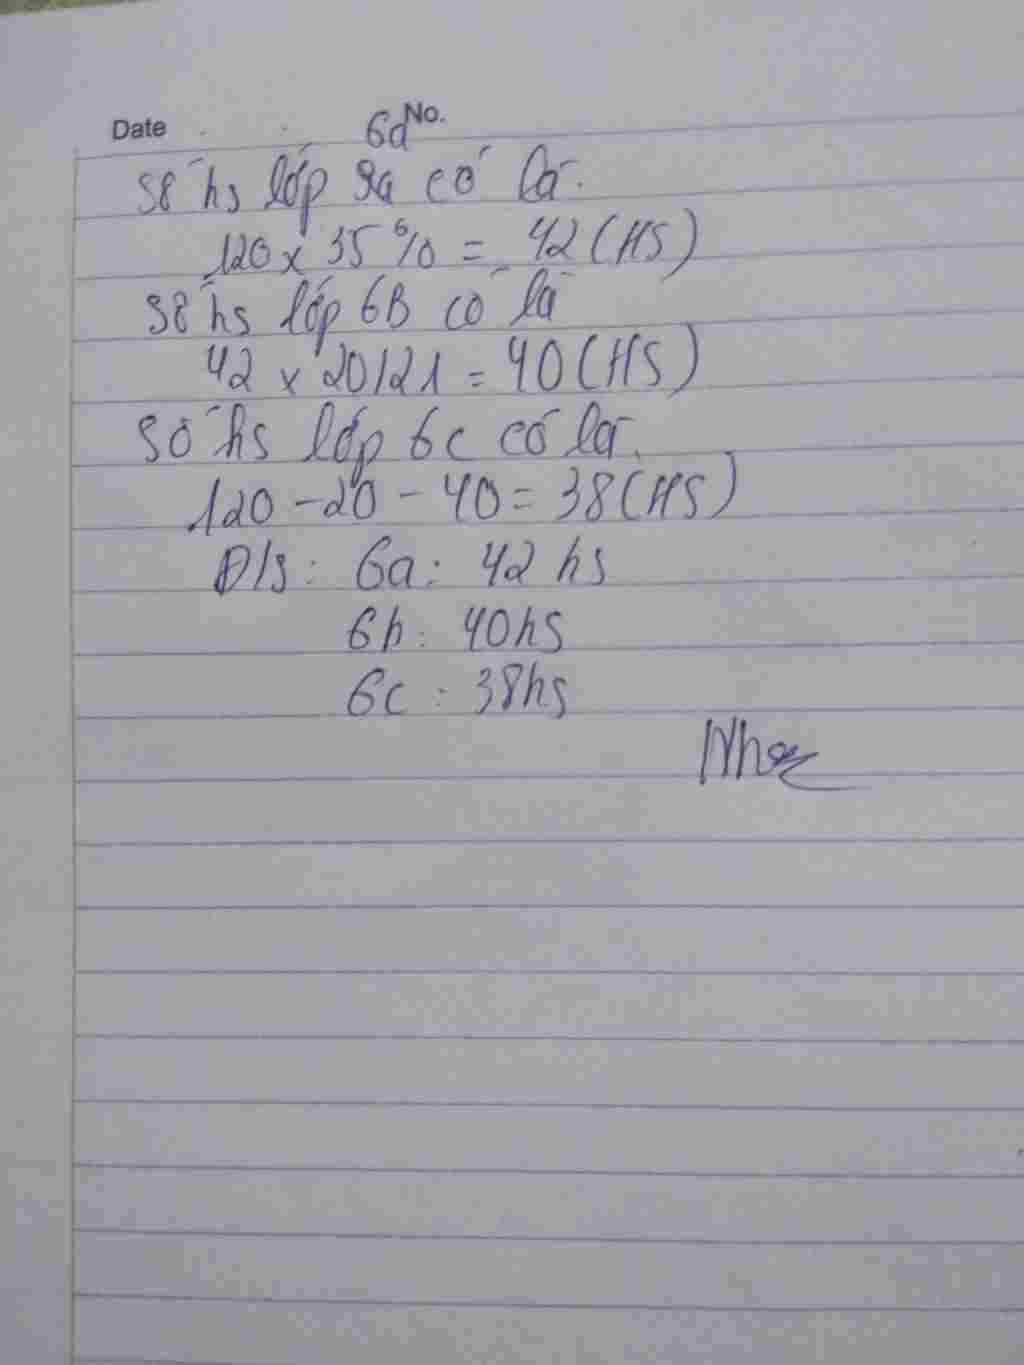 Date
No.
6a
Số hs lớp 9a có là:
120 x 35% = 42 (HS)
Số hs lớp 6B có là
42 x 20/21 = 40 (HS)
Số hs lớp 6c có là.
120 - 20 - 40 = 38 (HS)
Đ/s: 6a: 42 hs
6b: 40hs
6c: 38hs